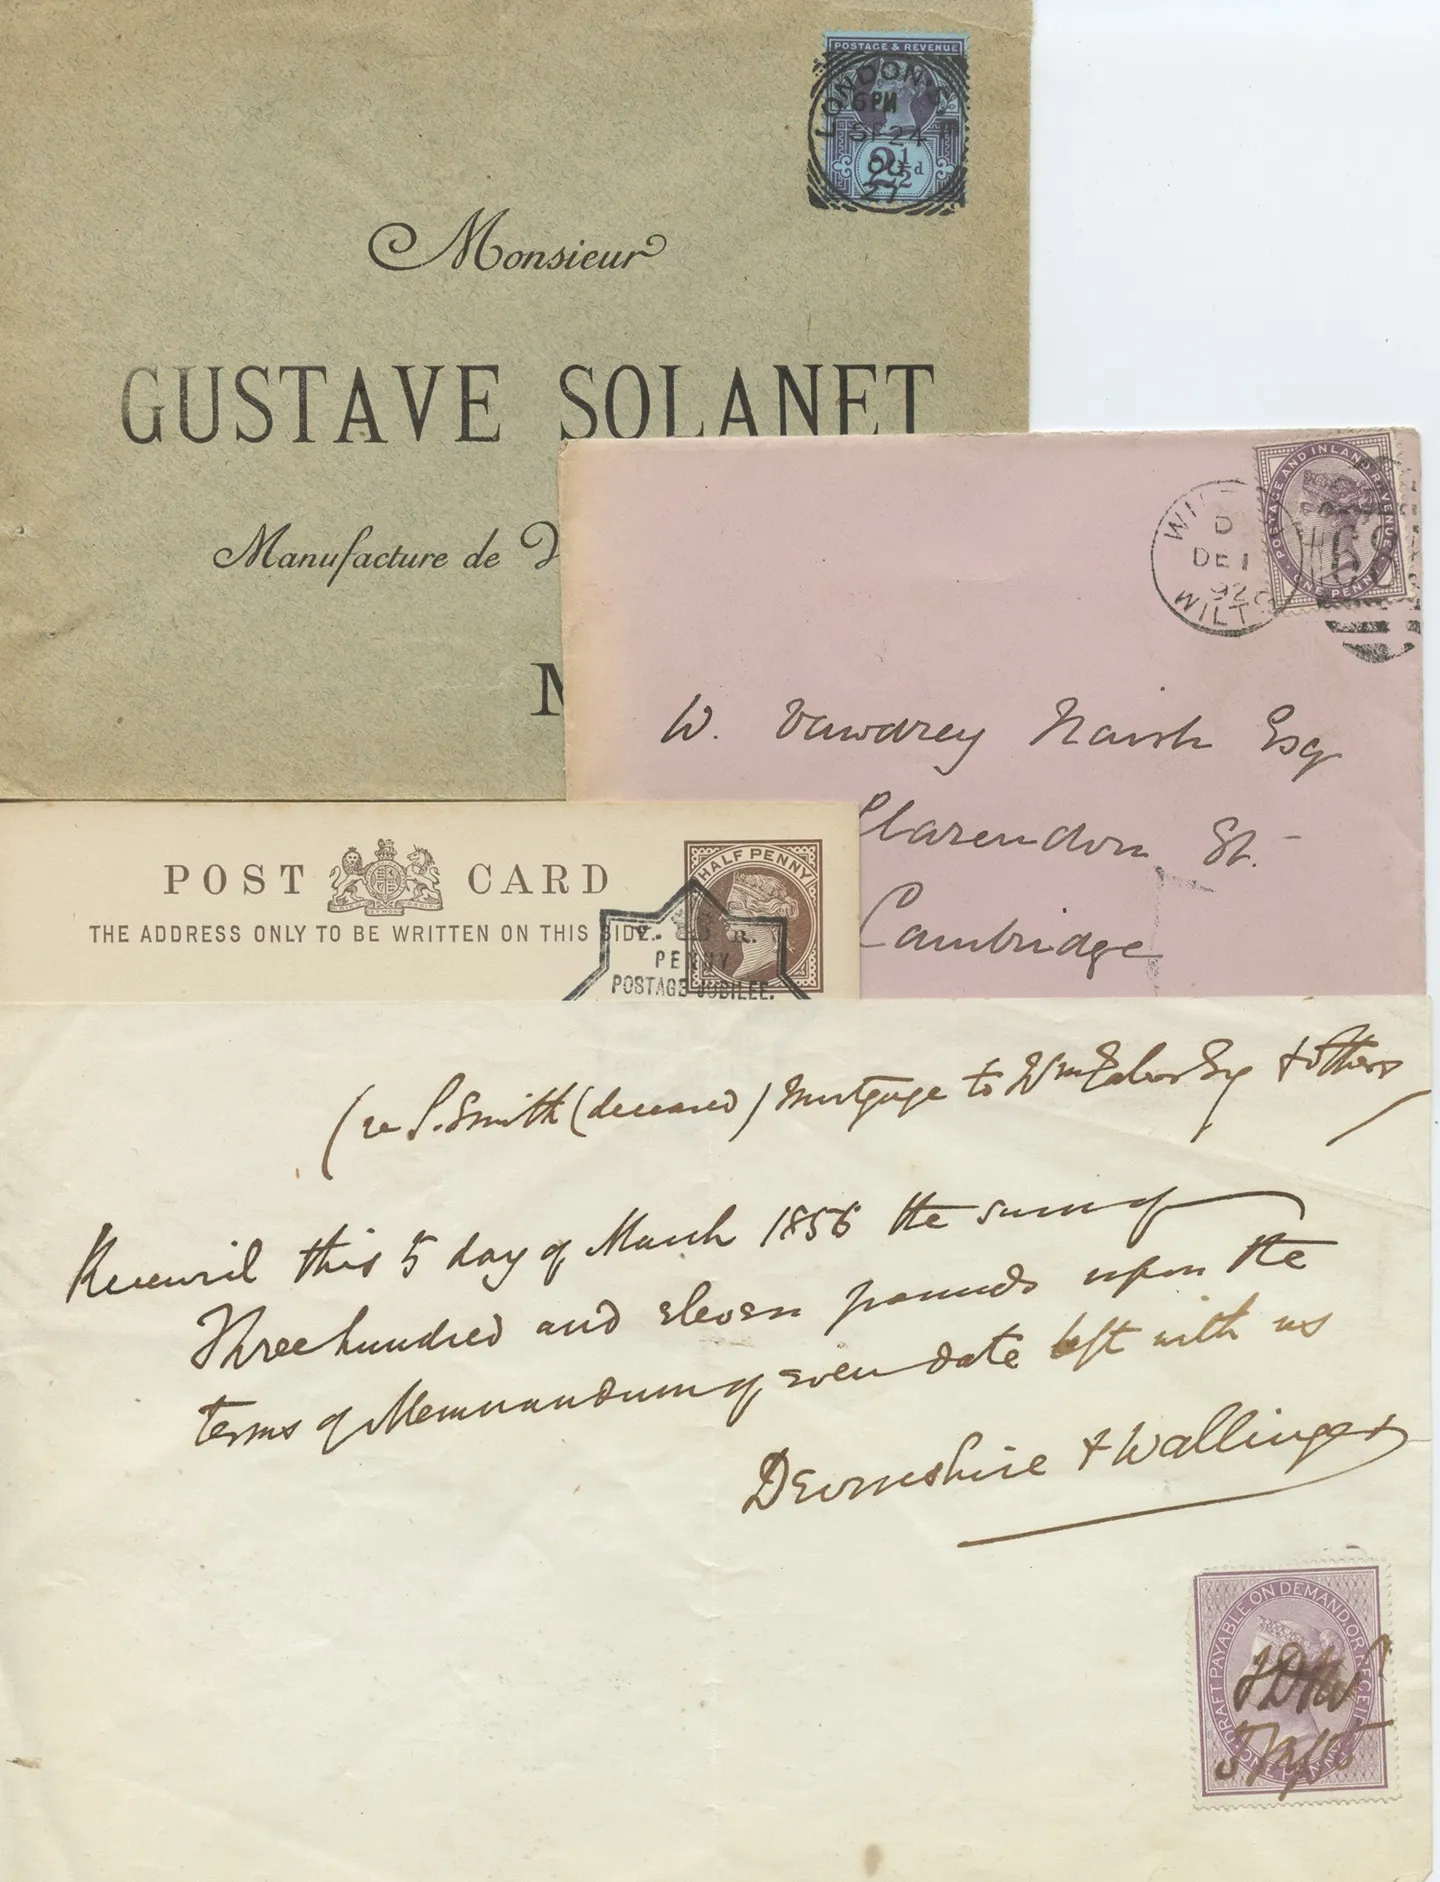 POSTAGE & REVENUE
LONDON. S.E
6PM
SP 24
2½d
Monsieur
GUSTAVE SOLANET
Manufacture de
POSTAGE AND INLAND REVENUE
ONE PENNY
D
DE 1
92
WILTS
W. Vawdrey Naish Esq
Clarendon St.
Cambridge
POST CARD
THE ADDRESS ONLY TO BE WRITTEN ON THIS SIDE.
HALF PENNY
V. R.
PENNY
POSTAGE JUBILEE.
(re S. Smith (deceased) Mortgage to Wm Esq & others
Received this 5 day of March 1856 the sum of
Three hundred and eleven pounds upon the
terms of Memorandum of even date left with us
Devonshire & Wallinger
DRAFT PAYABLE ON DEMAND, OR RECEIPT
ONE PENNY